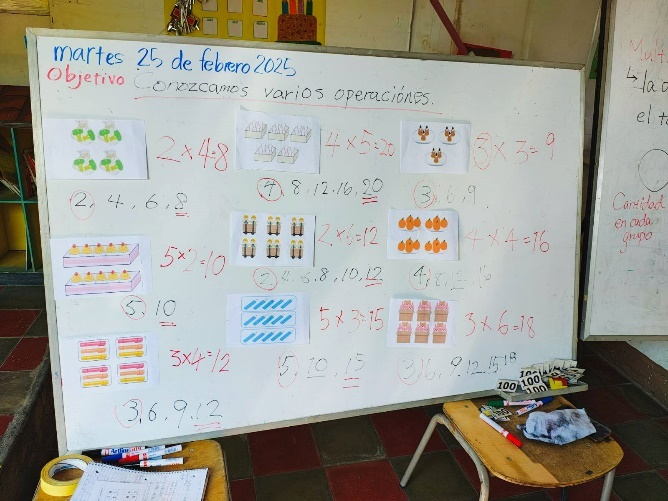 martes 25 de febrero 2025
Objetivo Conozcamos varios operaciónes.
2 x 4=8
2, 4, 6, 8
4 x 5=20
4, 8, 12, 16, 20
3 x 3= 9
3, 6, 9.
5 x 2=10
5, 10
2 x 6=12
2, 4, 6, 8, 10, 12
4 x 4=16
4, 8, 12, 16
3 x 4=12
3, 6, 9, 12
5 x 3=15
5, 10, 15
3 x 6=18
3, 6, 9, 12, 15, 18
la
el
Cantidad
en cada
grupo
100
100